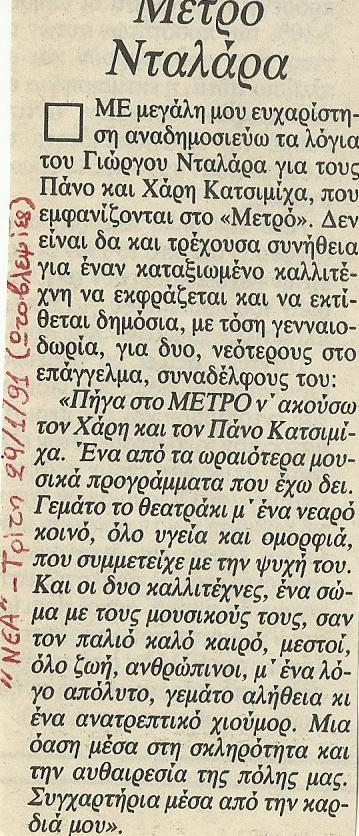 Μετρό
Νταλάρα
ΜΕ μεγάλη μου ευχαρίστη-
ση αναδημοσιεύω τα λόγια
του Γιώργου Νταλάρα για τους
Πάνο και Χάρη Κατσιμίχα, που
εμφανίζονται στο «Μετρό». Δεν
είναι δα και τρέχουσα συνήθεια
για έναν καταξιωμένο καλλιτέ-
χνη να εκφράζεται και να εκτί-
θεται δημόσια, με τόση γενναιο-
δωρία, για δυο, νεότερους στο
επάγγελμα, συναδέλφους του:
«Πήγα στο ΜΕΤΡΟ ν' ακούσω
τον Χάρη και τον Πάνο Κατσιμί-
χα. Ένα από τα ωραιότερα μου-
σικά προγράμματα που έχω δει.
Γεμάτο το θεατράκι μ' ένα νεαρό
κοινό, όλο υγεία και ομορφιά,
που συμμετείχε με την ψυχή του.
Και οι δυο καλλιτέχνες, ένα σώ-
μα με τους μουσικούς τους, σαν
τον παλιό καλό καιρό, μεστοί,
όλο ζωή, ανθρώπινοι, μ' ένα λό-
γο απόλυτο, γεμάτο αλήθεια κι
ένα ανατρεπτικό χιούμορ. Μια
όαση μέσα στη σκληρότητα και
την αυθαιρεσία της πόλης μας.
Συγχαρτήρια μέσα από την καρ-
διά μου».
"ΝΕΑ" - Τρίτη 29/1/91 (Στοβλεψιές)